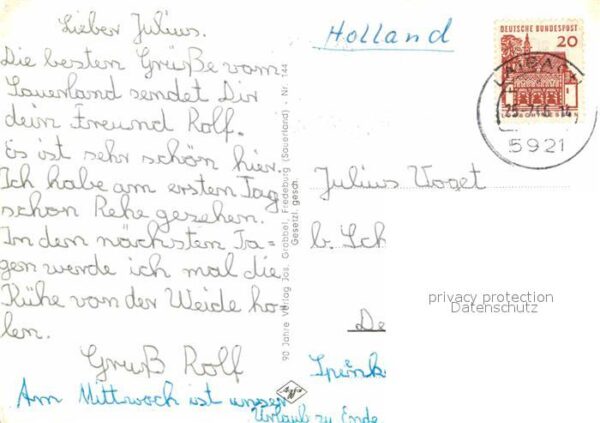 Lieber Julius.
Die besten Grüße vom
Sauerland sendet Dir
dein Freund Rolf.
Es ist sehr schön hier.
Ich habe am ersten Tag
schon Rehe gesehen.
In den nächsten Ta-
gen werde ich mal die
Kühe von der Weide ho-
len.
Gruß Rolf
Am Mittwoch ist unser
Urlaub zu Ende
90 Jahre Verlag Jos. Grobbel, Fredeburg (Sauerland) · Nr. 144
Gesetzl. gesch.
Agfa
Holland
DEUTSCHE BUNDESPOST
20
5921
Julius Voget
b. Sch
De
Spenk
privacy protection
Datenschutz